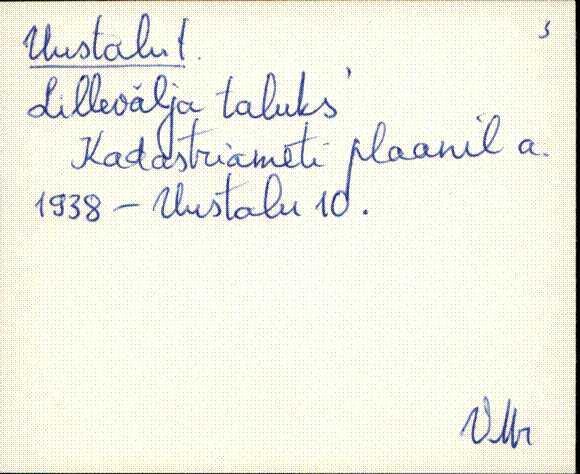 3
Uustalu 1.
Lillevälja taluks'
Kadastriameti plaanil a.
1938 – Uustalu 10.
VMr